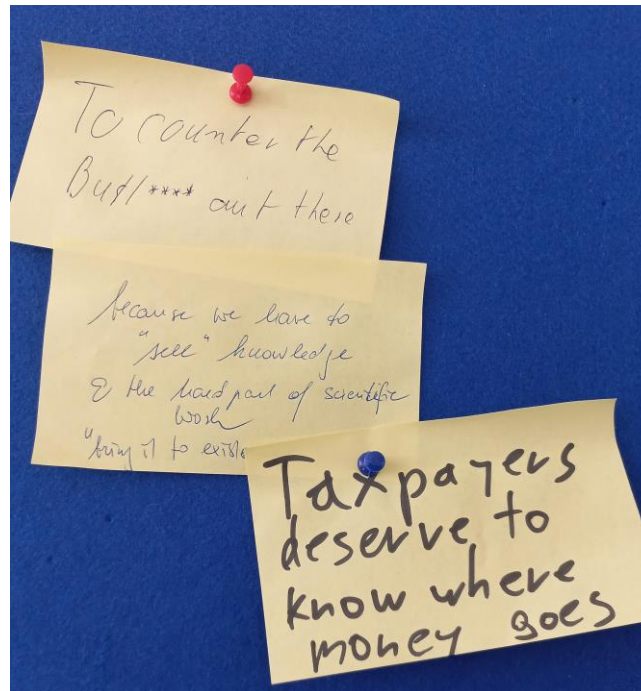 To counter the
Bull**** out there
because we have to
"sell" knowledge
& the hard part of scientific
work
"bring it to
Taxpayers
deserve to
know where
money goes